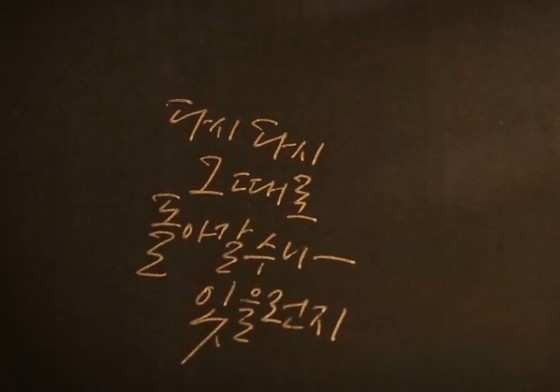 다시 다시
그때로
돌아갈 수나
있을런지